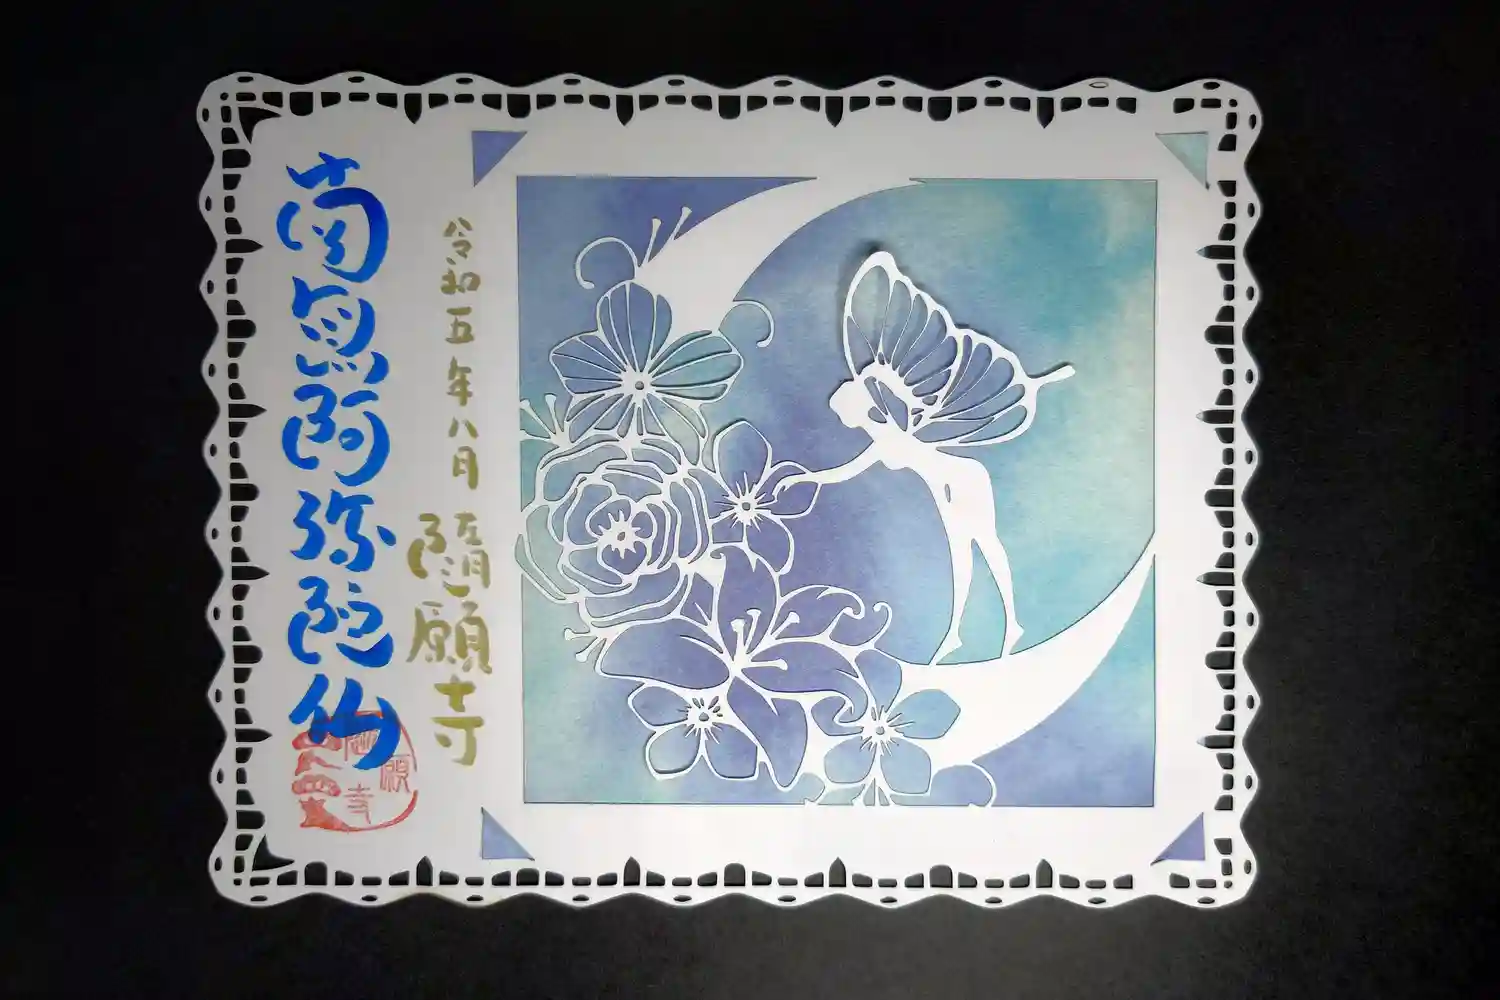 南無阿弥陀仏
令和五年八月
随願寺